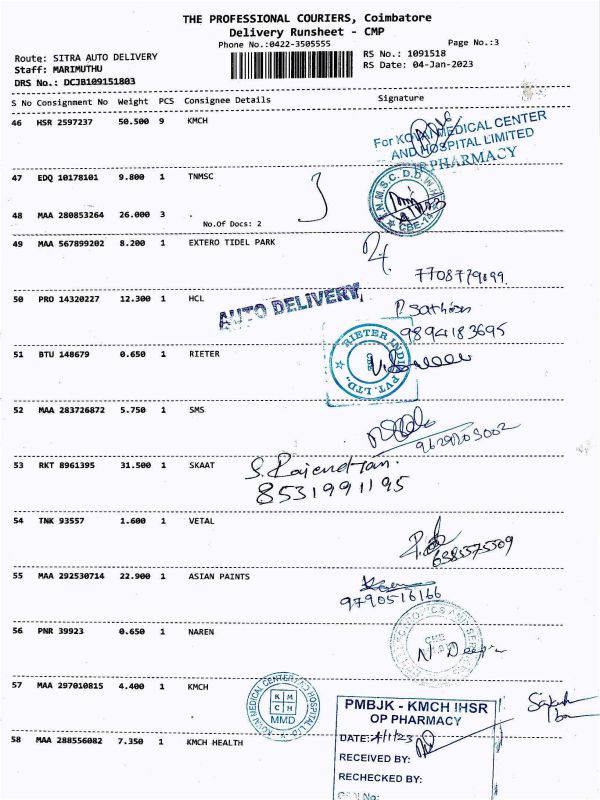 THE PROFESSIONAL COURIERS, Coimbatore
Delivery Runsheet - CMP
Phone No.:0422-3505555
Page No.:3
Route: SITRA AUTO DELIVERY
RS No.: 1091518
Staff: MARIMUTHU
RS Date: 04-Jan-2023
DRS No.: DCJB109151803
S No Consignment No Weight PCS Consignee Details Signature
46 HSR 2597237 50.500 9 KMCH
For KOVAI MEDICAL CENTER
AND HOSPITAL LIMITED
PHARMACY
47 EDQ 10178101 9.800 1 TNMSC
48 MAA 280853264 26.000 3 .
No.Of Docs: 2
49 MAA 567899202 8.200 1 EXTERO TIDEL PARK
50 PRO 14320227 12.300 1 HCL
AUTO DELIVERY
P. Sathish
9894183695
51 BTU 148679 0.650 1 RIETER
RIETER INDIA PVT. LTD.,
52 MAA 283726872 5.750 1 SMS
53 RKT 8961395 31.500 1 SKAAT
S. Rajendran.
8531991195
54 TNK 93557 1.600 1 VETAL
6385575509
55 MAA 292530714 22.900 1 ASIAN PAINTS
9790516166
56 PNR 39923 0.650 1 NAREN
N Deepa
57 MAA 297010815 4.400 1 KMCH
KOVAI MEDICAL CENTER AND HOSPITAL Ltd.
K M
C H
MMD
PMBJK - KMCH IHSR
OP PHARMACY
DATE: 4/1/23
58 MAA 288556082 7.350 1 KMCH HEALTH
RECEIVED BY:
RECHECKED BY: